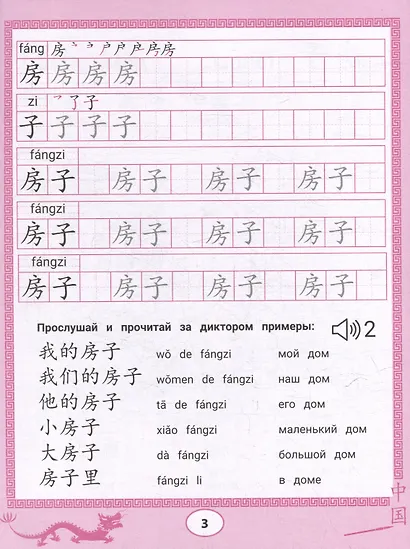 fáng 房 丶 ㇇ ⺕ 户 户 户 房 房 房
房 房 房 房
zi 乛 了 子
子 子 子 子
fángzi
房子 房子 房子 房子
fángzi
房子 房子 房子 房子
fángzi
房子 房子 房子 房子
Прослушай и прочитай за диктором примеры: 2
我的房子 wǒ de fángzi мой дом
我们的房子 wǒmen de fángzi наш дом
他的房子 tā de fángzi его дом
小房子 xiǎo fángzi маленький дом
大房子 dà fángzi большой дом
房子里 fángzi li в доме
中国
3